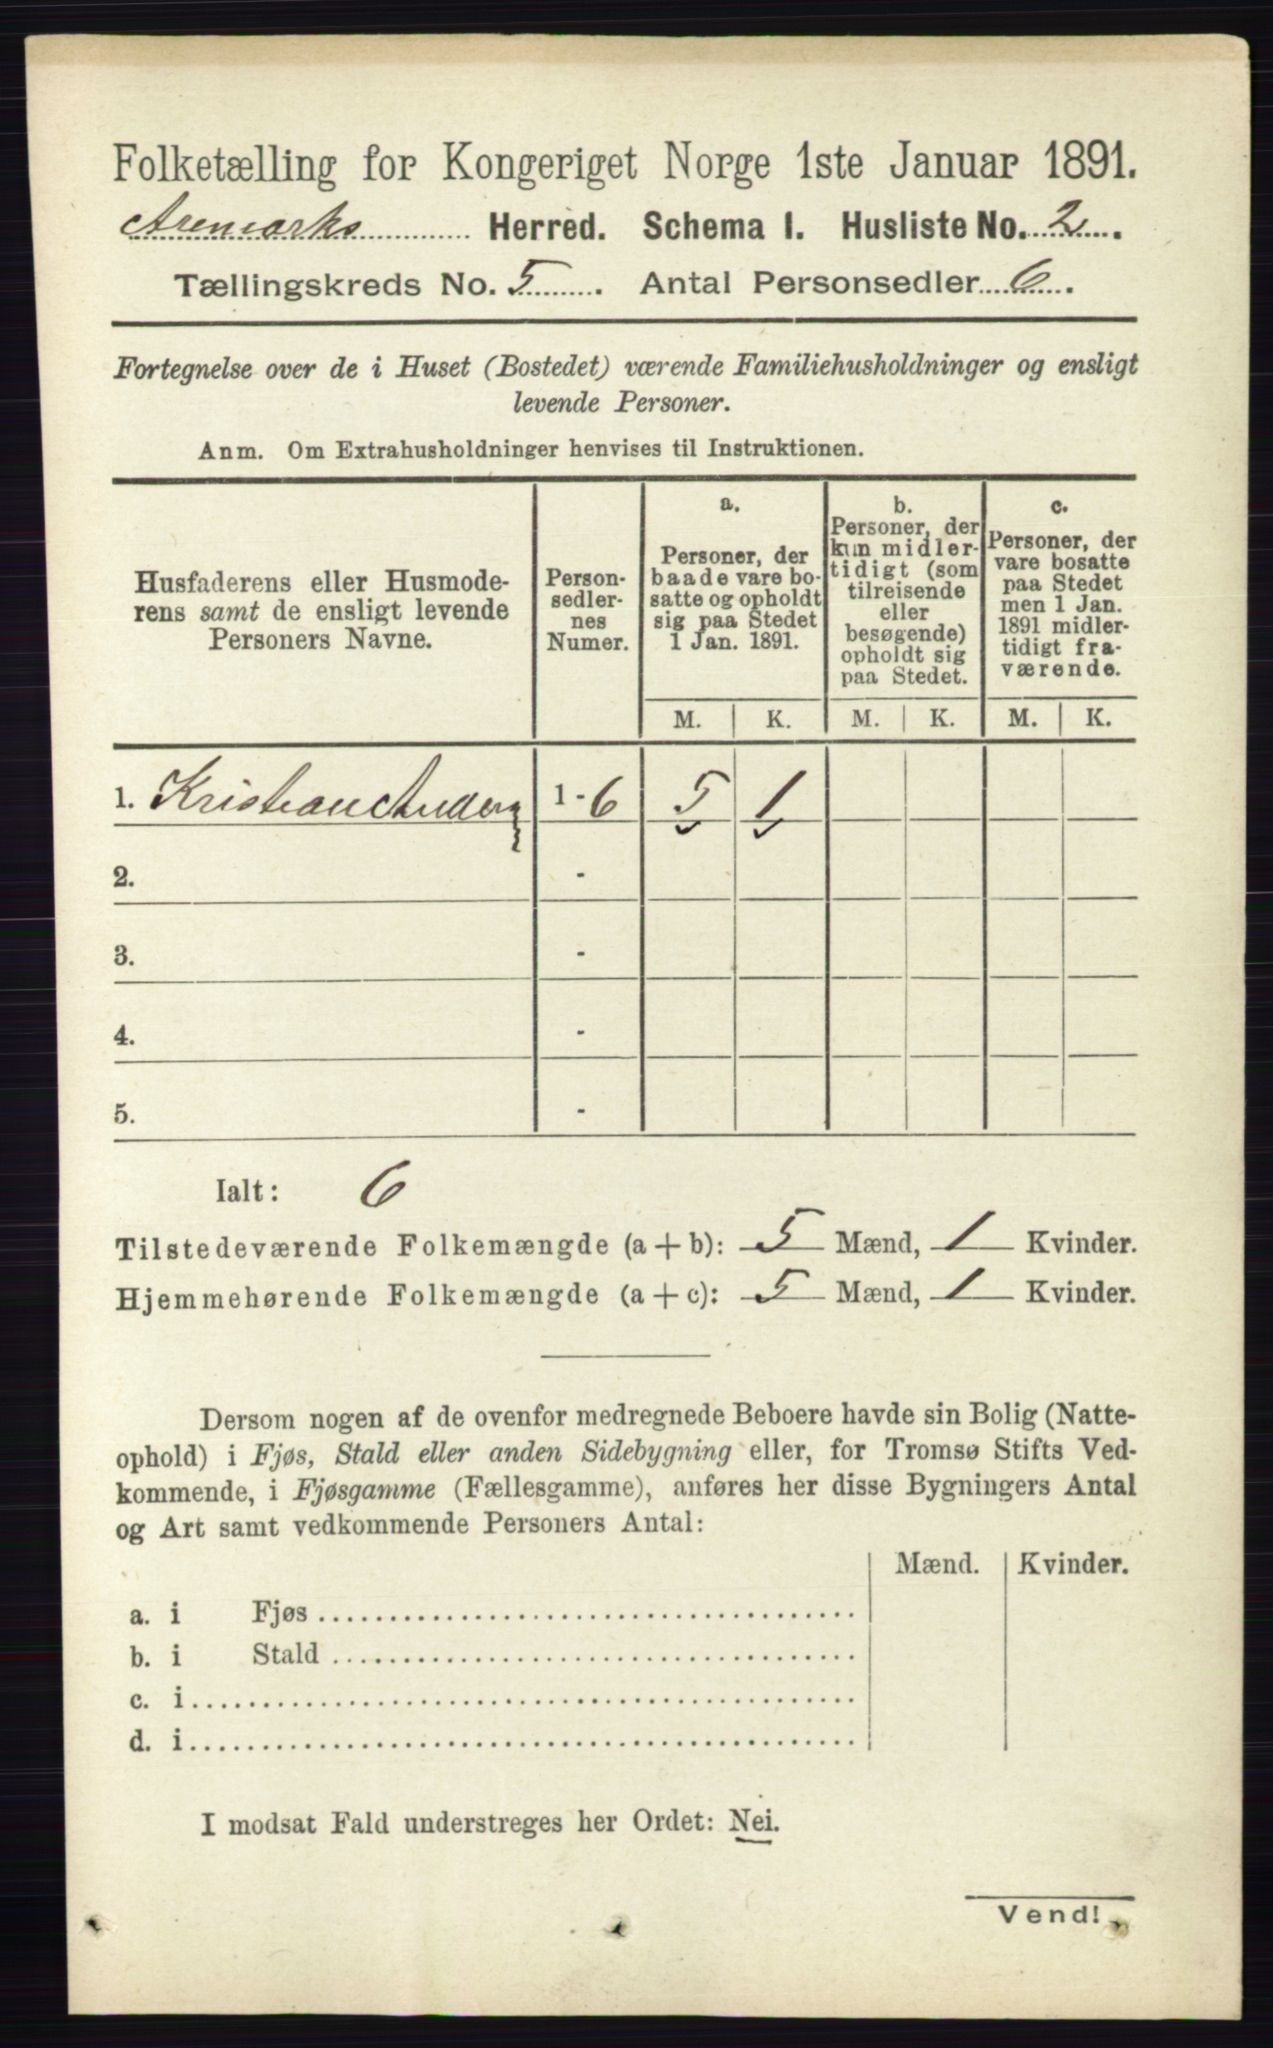 Folketælling for Kongeriget Norge 1ste Januar 1891.
Aremarks Herred. Schema I. Husliste No. 2.
Tællingskreds No. 5. Antal Personsedler 6.
Fortegnelse over de i Huset (Bostedet) værende Familiehusholdninger og ensligt
levende Personer.
Anm. Om Extrahusholdninger henvises til Instruktionen.
Husfaderens eller Husmode-
rens samt de ensligt levende
Personers Navne.
Person-
sedler-
nes
Numer.
a.
Personer, der
baade vare bo-
satte og opholdt
sig paa Stedet
1 Jan. 1891.
b.
Personer, der
kun midler-
tidigt (som
tilreisende
eller
besøgende)
opholdt sig
paa Stedet.
c.
Personer, der
vare bosatte
paa Stedet
men 1 Jan.
1891 midler-
tidigt fra-
værende.
M. K. M. K. M. K.
1. Kristian Anders 1-6 5 1
2. -
3. -
4. -
5. -
Ialt: 6
Tilstedeværende Folkemængde (a + b): 5 Mænd, 1 Kvinder.
Hjemmehørende Folkemængde (a + c): 5 Mænd, 1 Kvinder.
Dersom nogen af de ovenfor medregnede Beboere havde sin Bolig (Natte-
ophold) i Fjøs, Stald eller anden Sidebygning eller, for Tromsø Stifts Ved-
kommende, i Fjøsgamme (Fællesgamme), anføres her disse Bygningers Antal
og Art samt vedkommende Personers Antal:
Mænd. Kvinder.
a. i Fjøs
b. i Stald
c. i
d. i
I modsat Fald understreges her Ordet: Nei.
Vend!